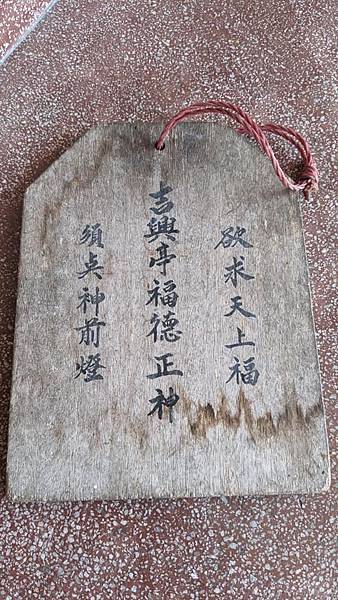 欲求天上福
吉興亭福德正神
須点神前燈